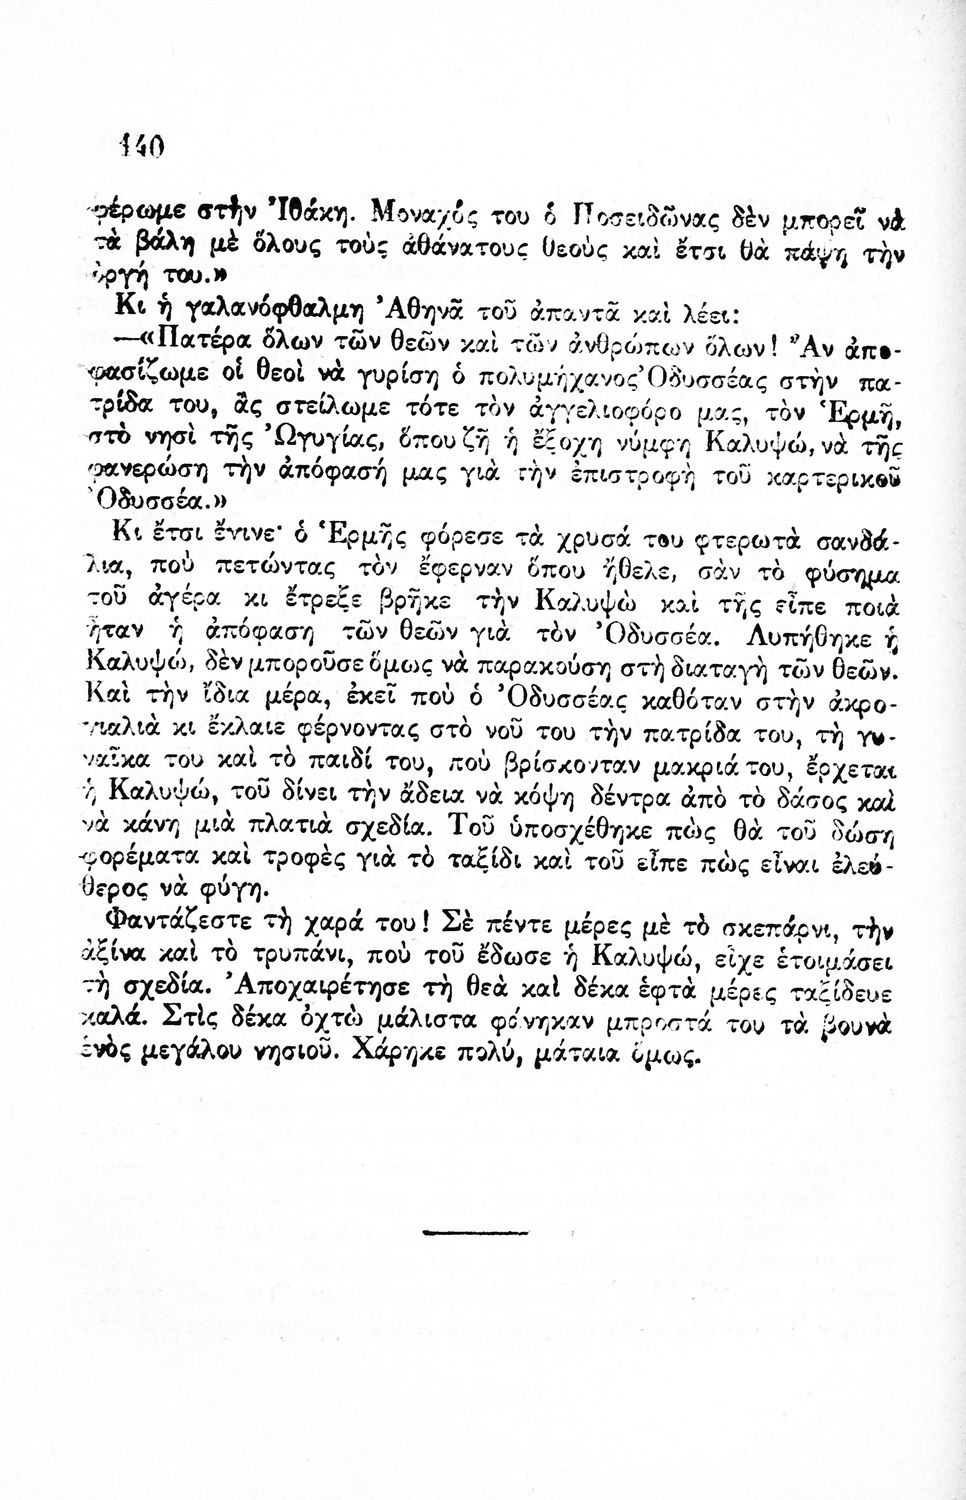 140
φέρωμε στὴν Ἰθάκη. Μοναχός του ὁ Ποσειδῶνας δὲν μπορεῖ νὰ
τὰ βάλη μὲ ὅλους τοὺς ἀθάνατους θεοὺς καὶ ἔτσι θὰ πάψη τὴν
ὀργή του.»
Κι ἡ γαλανόφθαλμη Ἀθηνᾶ τοῦ ἀπαντᾶ καὶ λέει:
—«Πατέρα ὅλων τῶν θεῶν καὶ τῶν ἀνθρώπων ὅλων! Ἂν ἀπο-
φασίζωμε οἱ θεοὶ νὰ γυρίση ὁ πολυμήχανος Ὀδυσσέας στὴν πα-
τρίδα του, ἂς στείλωμε τότε τὸν ἀγγελιοφόρο μας, τὸν Ἑρμῆ,
στὸ νησὶ τῆς Ὠγυγίας, ὅπου ζῆ ἡ ἔξοχη νύμφη Καλυψώ, νὰ τῆς
φανερώση τὴν ἀπόφασή μας γιὰ τὴν ἐπιστροφὴ τοῦ καρτερικοῦ
Ὀδυσσέα.»
Κι ἔτσι ἔγινε· ὁ Ἑρμῆς φόρεσε τὰ χρυσά του φτερωτὰ σανδά-
λια, ποὺ πετώντας τὸν ἔφερναν ὅπου ἤθελε, σὰν τὸ φύσημα
τοῦ ἀγέρα κι ἔτρεξε βρῆκε τὴν Καλυψὼ καὶ τῆς εἶπε ποιὰ
ἦταν ἡ ἀπόφαση τῶν θεῶν γιὰ τὸν Ὀδυσσέα. Λυπήθηκε ἡ
Καλυψώ, δὲν μποροῦσε ὅμως νὰ παρακούση στὴ διαταγὴ τῶν θεῶν.
Καὶ τὴν ἴδια μέρα, ἐκεῖ ποὺ ὁ Ὀδυσσέας καθόταν στὴν ἀκρο-
γιαλιὰ κι ἔκλαιε φέρνοντας στὸ νοῦ του τὴν πατρίδα του, τὴ γυ-
ναῖκα του καὶ τὸ παιδί του, ποὺ βρίσκονταν μακριά του, ἔρχεται
ἡ Καλυψώ, τοῦ δίνει τὴν ἄδεια νὰ κόψη δέντρα ἀπὸ τὸ δάσος καὶ
νὰ κάνη μιὰ πλατιὰ σχεδία. Τοῦ ὑποσχέθηκε πὼς θὰ τοῦ δώση
φορέματα καὶ τροφὲς γιὰ τὸ ταξίδι καὶ τοῦ εἶπε πὼς εἶναι ἐλεύ-
θερος νὰ φύγη.
Φαντάζεστε τὴ χαρά του! Σὲ πέντε μέρες μὲ τὸ σκεπάρνι, τὴν
ἀξίνα καὶ τὸ τρυπάνι, ποὺ τοῦ ἔδωσε ἡ Καλυψώ, εἶχε ἑτοιμάσει
τὴ σχεδία. Ἀποχαιρέτησε τὴ θεὰ καὶ δέκα ἑφτὰ μέρες ταξίδευε
καλά. Στὶς δέκα ὀχτὼ μάλιστα φάνηκαν μπροστά του τὰ βουνὰ
ἑνὸς μεγάλου νησιοῦ. Χάρηκε πολύ, μάταια ὅμως.